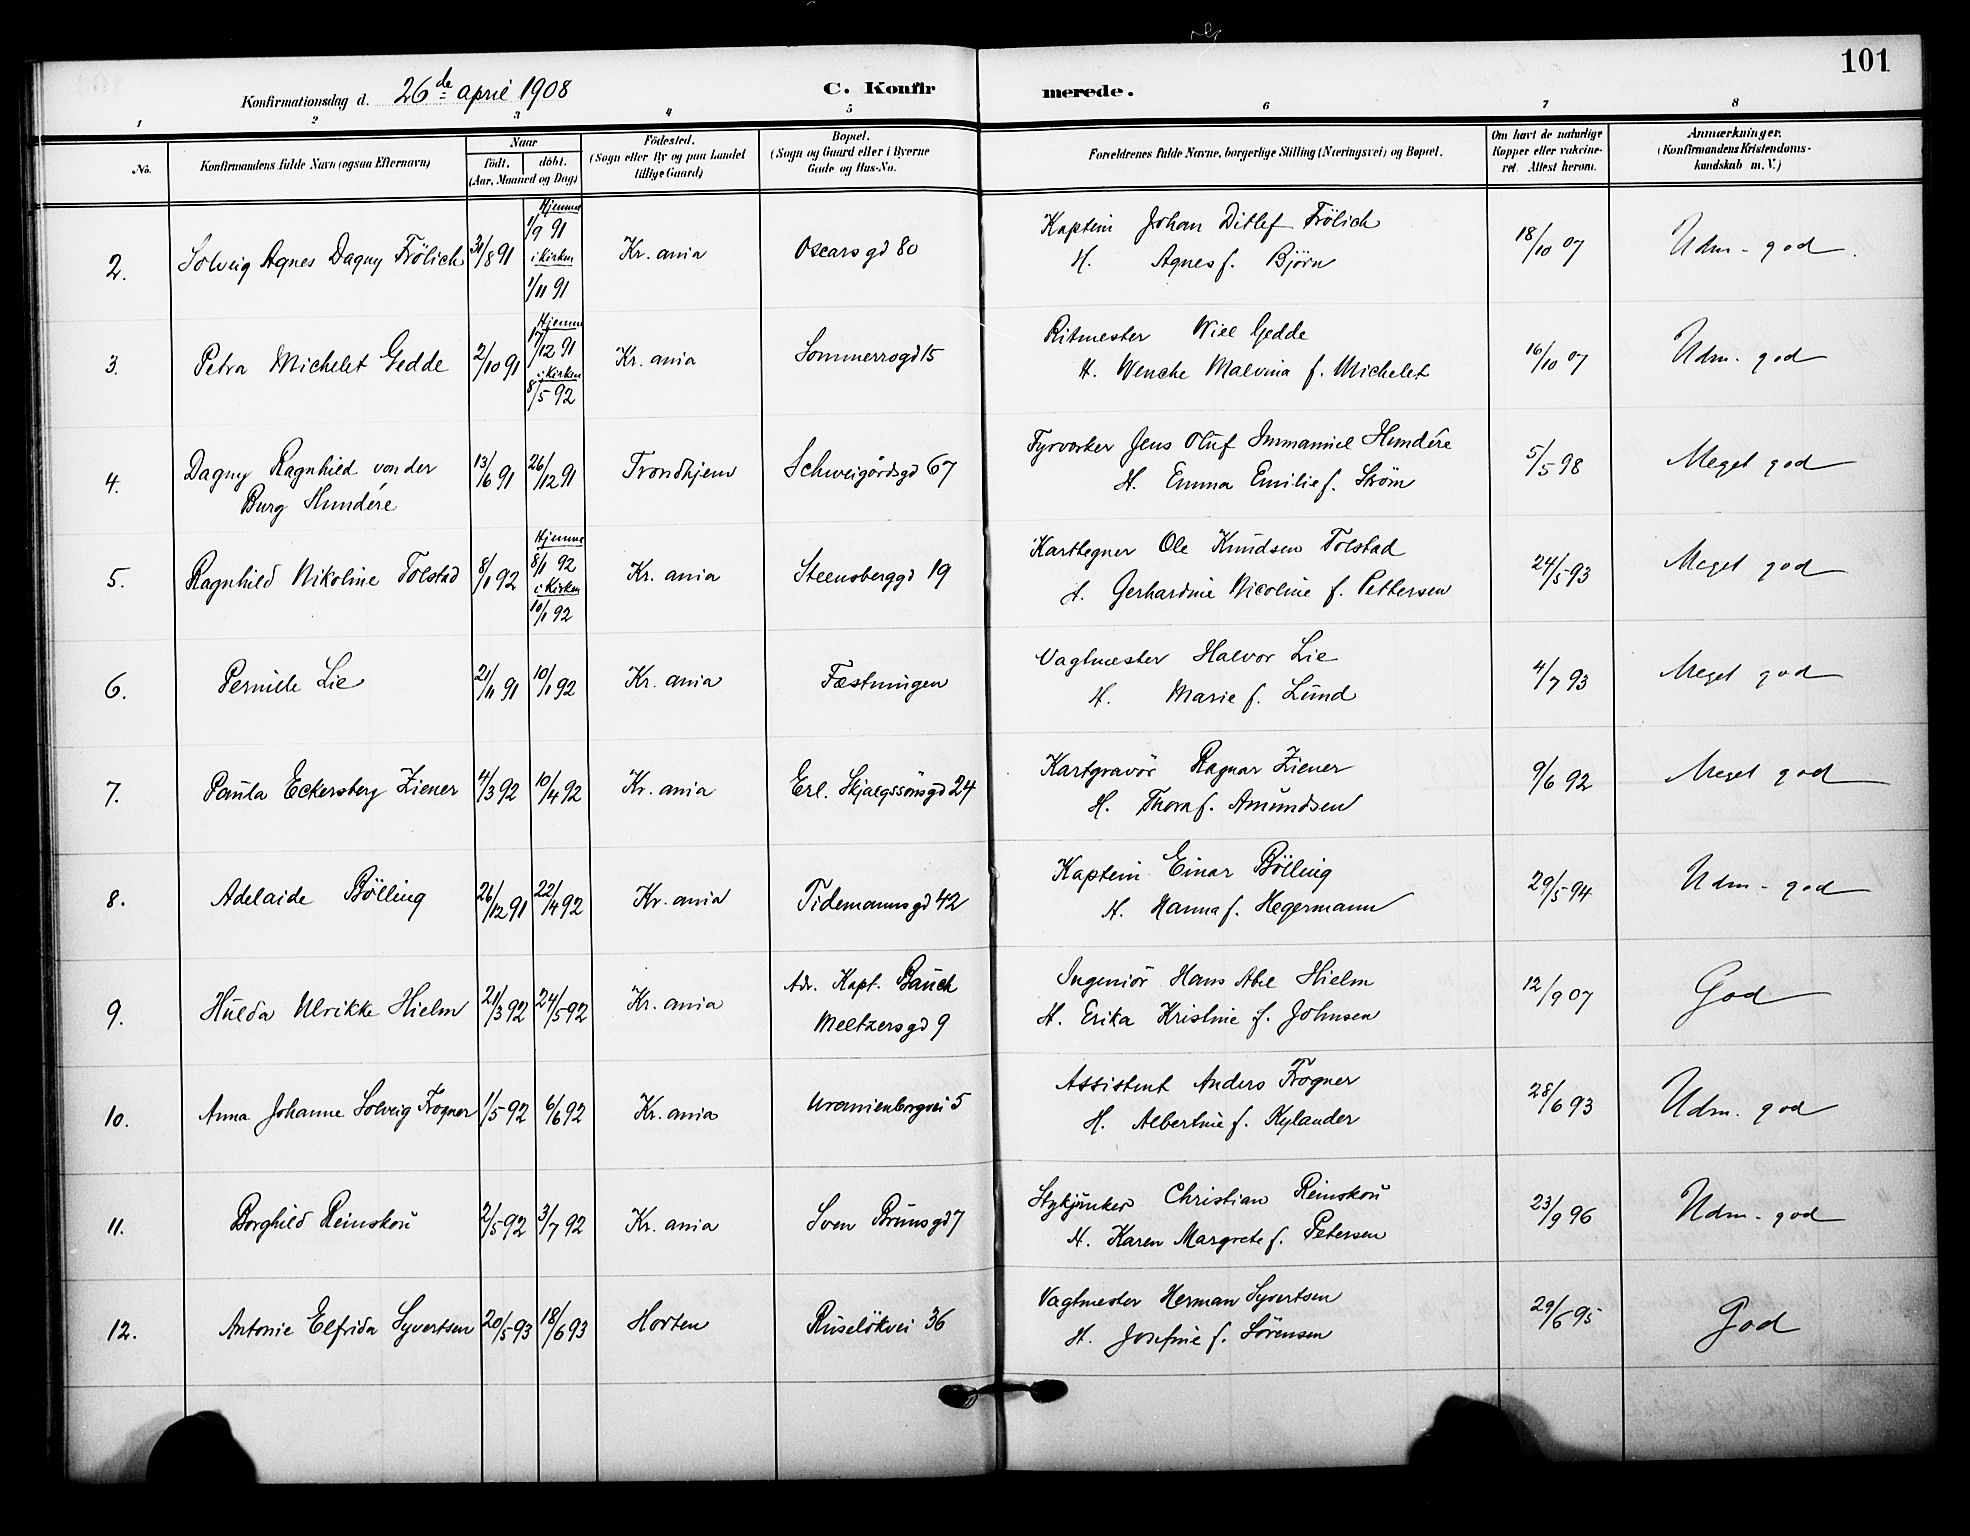 101
Konfirmationsdag d. 26de april 1908
C. Konfirmerede.
1 2 3 4 5 6 7 8
No.
Konfirmandens fulde Navn (ogsaa Efternavn)
Naar
født. døbt.
(Aar, Maaned og Dag)
Fødested.
(Sogn eller By og paa Landet
tillige Gaard)
Bopæl.
(Sogn og Gaard eller i Byerne
Gade og Hus-No.
Forældrenes fulde Navne, borgerlige Stilling (Næringsvei) og Bopæl.
Om havt de naturlige
Kopper eller vakcine-
ret. Attest herom.
Anmærkninger.
(Konfirmandens Kristendoms-
kundskab m. V.)
2. Solveig Agnes Dagny Frölich 31/8 91 Hjemme 1/9 91 i Kirken 1/11 91 Kr.ania Oscarsgd 80 Kaptein Johan Ditlef Frölich 18/10 07 Udm-god.
H. Agnes f. Björn
3. Petra Michelet Gedde 2/10 91 Hjemme 17/12 91 i Kirken 8/5 92 Kr.ania Sommerrogd 15 Ritmester Will Gedde 16/10 07 Udm. god
H. Wenche Malvina f. Michelet
4. Dagny Ragnhild von der 13/6 91 26/12 91 Trondhjem Schweigårdsgd 67 Fyrvorker Jens Oluf Immanuel Hundére 5/5 98 Meget god
Burg Hundére H. Emma Emilie f. Ström
5. Ragnhild Nikoline Tolstad 8/1 92 Hjemme 8/1 92 i Kirken 10/1 92 Kr.ania Steensberggd 19 Karttegner Ole Knudsen Tolstad 24/5 93 Meget god
H. Gerhardine Nicoline f. Pettersen
6. Pernille Lie 21/11 91 10/1 92 Kr.ania Fæstningen Vagtmester Halvor Lie 4/7 93 Meget god
H. Marie f. Lund
7. Paula Eckersberg Ziener 4/3 92 10/4 92 Kr.ania Erl. Skjalgssönsgd 24 Kartgravör Ragnar Ziener 9/6 92 Meget god
H. Thora f. Amundsen
8. Adelaide Bölling 26/12 91 22/4 92 Kr.ania Tidemannsgd 42 Kaptein Einar Bölling 29/5 94 Udm-god
H. Hanna f. Hegermann
9. Hulda Ulrikke Hielm 21/3 92 24/5 92 Kr.ania Adr. Kapt. Bauck Ingeniör Hans Abel Hielm 12/9 07 God
Meltzersgd 9 H. Erika Kristine f. Johnsen
10. Anna Johanne Solveig Frogner 1/5 92 6/6 92 Kr.ania Uranienborgvei 5 Assistent Anders Frogner 28/6 93 Udm. god
H. Albertine f. Kylander
11. Borghild Reinskou 2/5 92 3/7 92 Kr.ania Sven Brunsgd 7 Stykjunker Christian Reinskou 23/9 96 Udm-god
H. Karen Margrete f. Petersen
12. Antonie Elfrida Syvertsen 20/5 93 18/6 93 Horten Ruselökvei 36 Vagtmester Herman Syvertsen 29/6 95 God
H. Josefine f. Sörensen